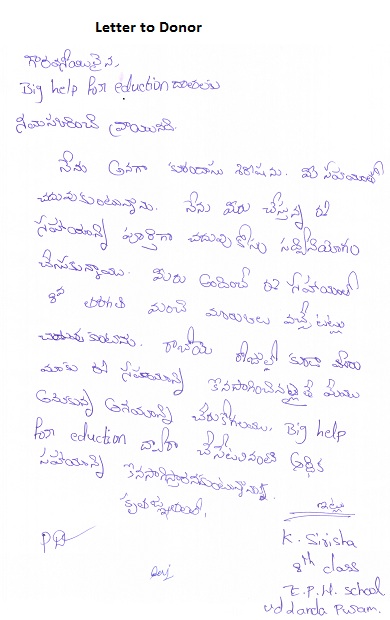 Letter to Donor
గౌరవనీయులైన,
Big help for eduction దాతలకు
నమస్కరించి వ్రాయునది.
నేను అనగా కురందాసు శిరీషను. మీ సహాయంతో
చదువుకుంటున్నాను. నేను మీరు చేస్తున్న ఈ
సహాయాన్ని పూర్తిగా చదువు కోసం సద్వినియోగం
చేసుకున్నాను. మీరు అందించే ఈ సహాయంతో
8వ తరగతి మంచి మార్కులు వచ్చే టట్లు
చదువుకుంటాను. రాబోయే రోజుల్లో కూడా మీరు
మాకు ఈ సహాయాన్ని కొనసాగించినట్లైతే మేము
అనుకున్న ఆశయాన్ని చేరుకోగలము. Big help
for eduction ద్వారా చేసేటువంటి ఆర్థిక
సహాయాన్ని కొనసాగిస్తారనుకుంటున్నాను.
కృతజ్ఞతలతో,
ఇట్లు
K. Sirisha
8th class
Z.P.H. School
Uddanda Puram.